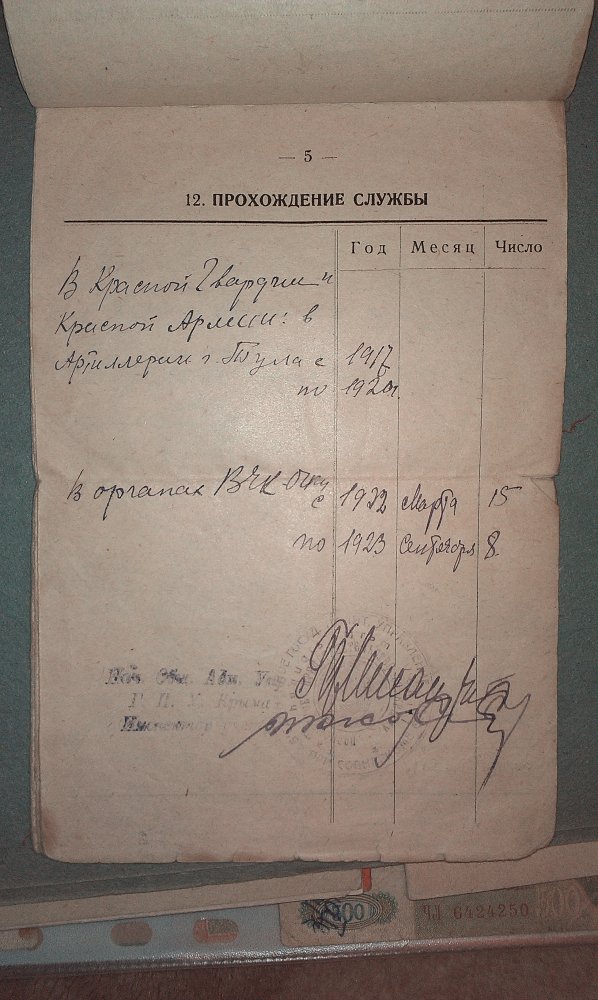 — 5 —
12. ПРОХОЖДЕНИЕ СЛУЖБЫ
Год Месяц Число
В Красной Гвардии и
Красной Армии: в
Артиллерии г. Тула с 1917
по 1920г.
В органах ВЧК-ОГПУ
с 1922 Марта 15
по 1923 Сентября 8
Нач. Адм. Упр.
Г. П. У. Крыма
Инспектор
100
ЧЛ 6424250
100